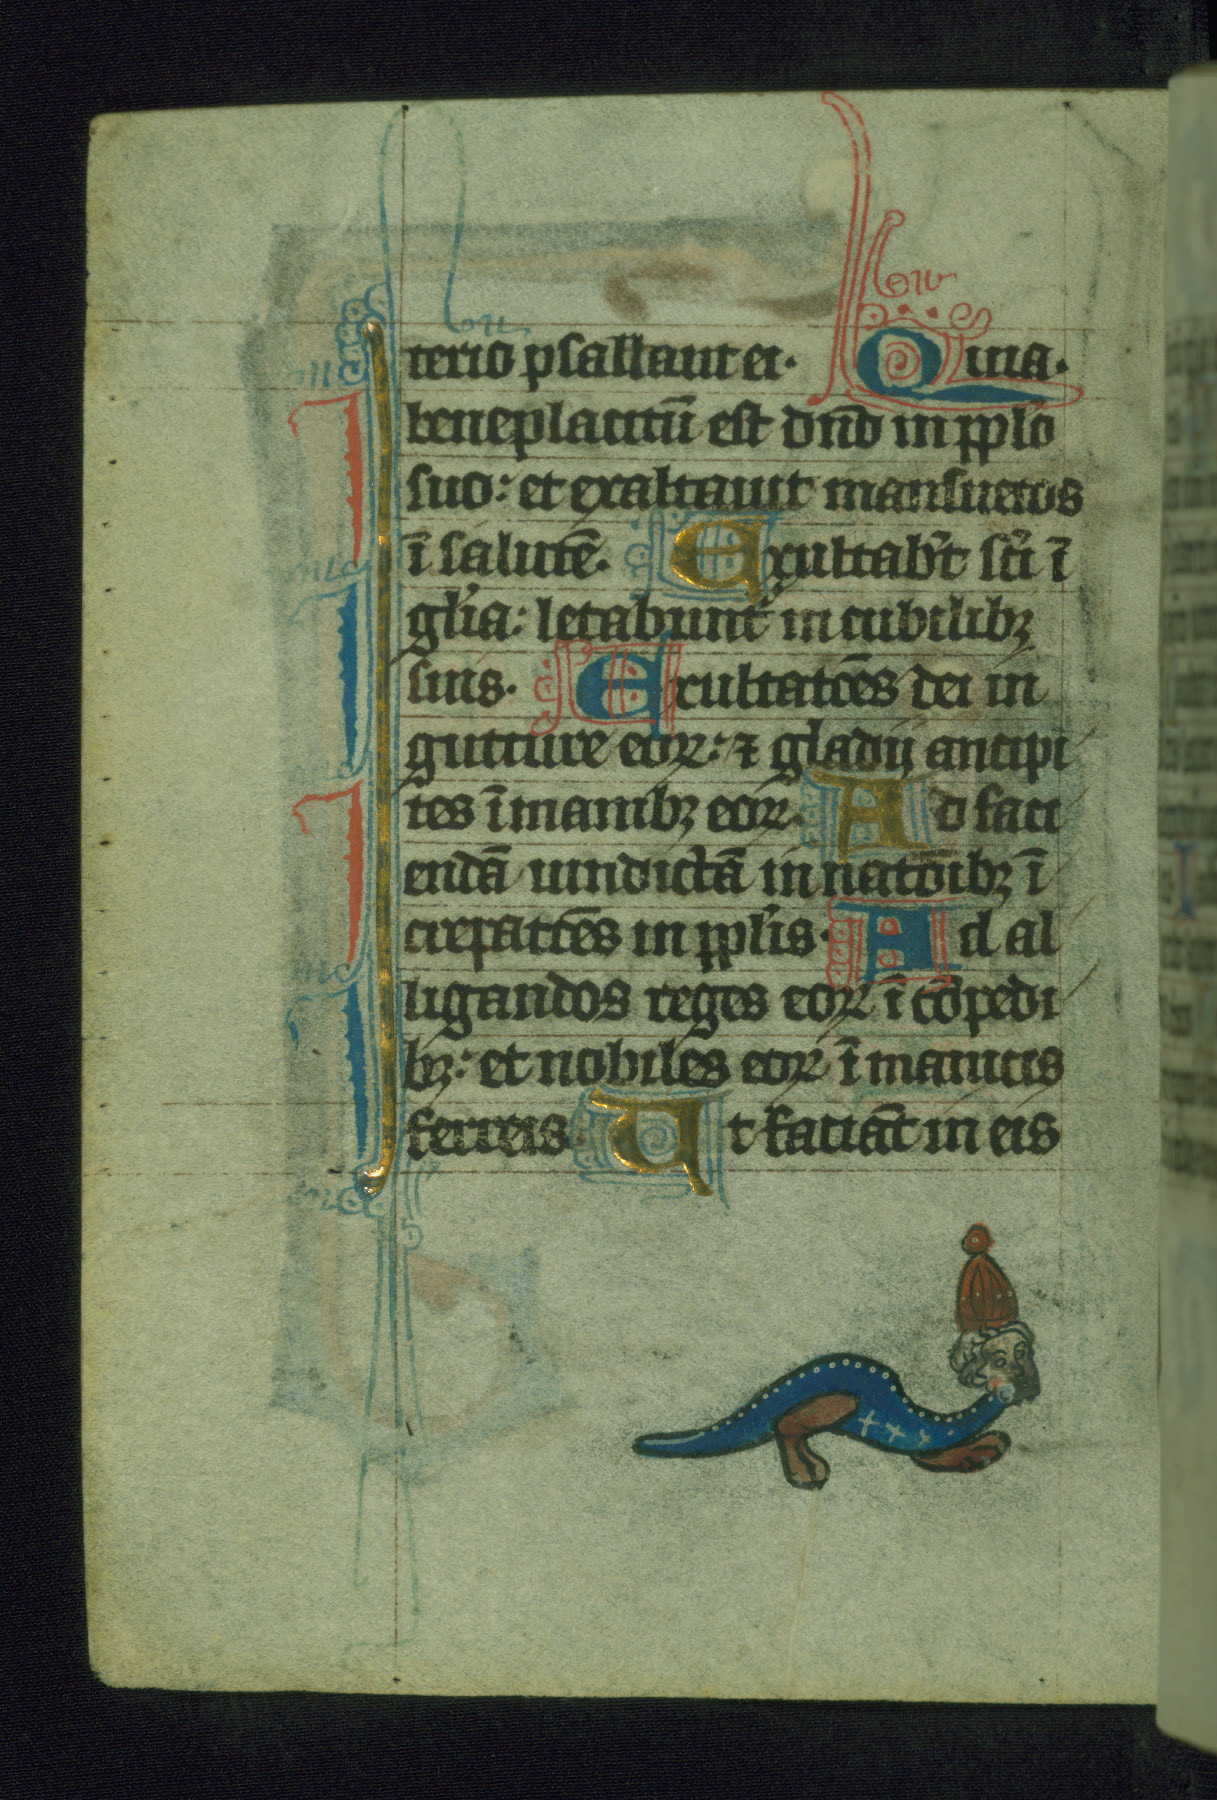 terio psallant ei. Quia.
beneplacitū est dn̄o in pp̄lo
suo: et exaltauit mansuetos
ī salutē. Exultab̄t sc̄i ī
gl̄ia: letabunt᷑ in cubilibꝫ
suis. Exultatōēs dei in
gutture eoꝝ: ⁊ gladij ancipi
tes ī manibꝫ eoꝝ. Ad faci
endā uindictā in natōibꝫ ī
crepatōēs in pp̄lis. Ad al
ligandos reges eoꝝ ī cōpedi
bꝫ: et nobiles eoꝝ ī manicis
ferreis. Ut faciāt in eis